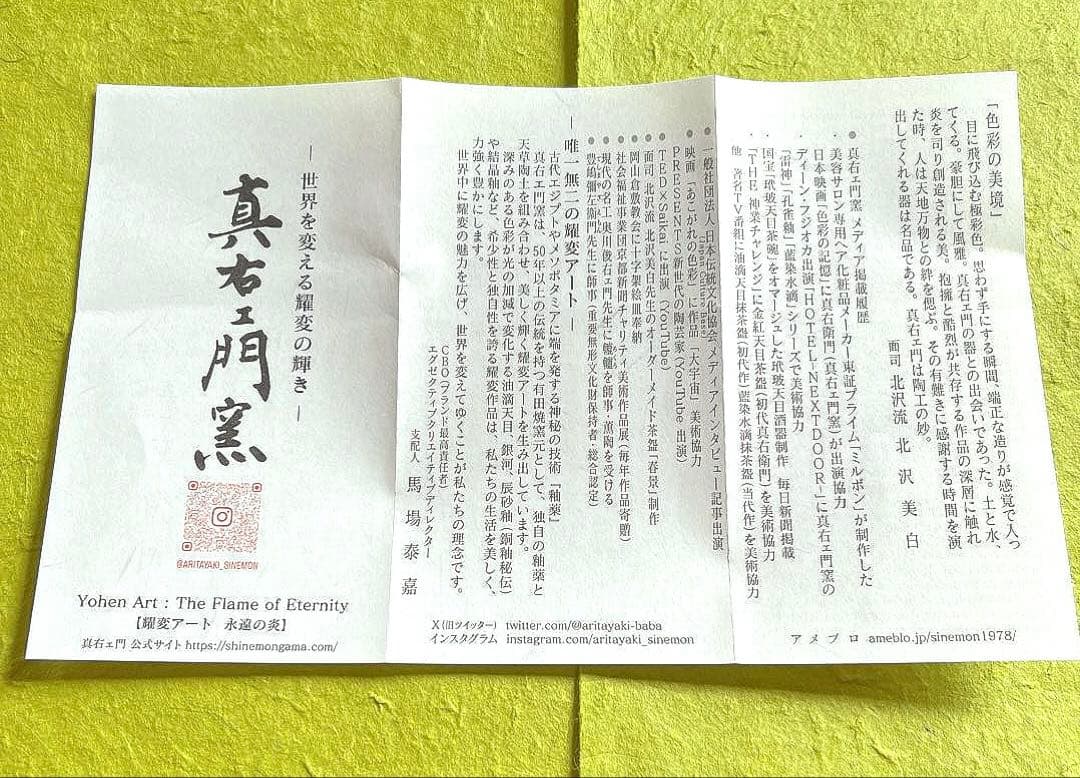 「色彩の美境」
目に飛び込む極彩色。思わず手にする瞬間、端正な造りが感覚で入っ
てくる。豪胆にして風雅。真右ェ門の器との出会いであった。土と水、
炎を司り創造される美。抱擁と酷烈が共存する作品の深層に触れ
た時、人は天地万物との絆を偲ぶ。その有難きに感謝する時間を演
出してくれる器は名品である。真右ェ門は陶工の妙。
面司 北沢流 北沢美白
● 真右ェ門窯 メディア掲載履歴
・美容サロン専用ヘア化粧品メーカー東証プライム「ミルボン」が制作した
日本映画「色彩の記憶」に真右衛門(真右ェ門窯)が出演協力
・ディーン・フジオカ出演「HOTEL-NEXTDOOR-」に真右ェ門窯の
「雷神」「孔雀釉」「藍染水滴」シリーズで美術協力
・国宝「玳玻天目茶碗」をオマージュした玳玻天目酒器制作 毎日新聞掲載
・「THE 神業チャレンジ」に金紅天目茶盌(初代真右衛門)を美術協力
他 著名TV番組に油滴天目抹茶盌(初代作)藍染水滴抹茶盌(当代作)を美術協力
アメブロ ameblo.jp/sinemon1978/
● 一般社団法人 日本伝統文化協会 メディアインタビュー記事出演
● 映画「あこがれの色彩」に作品「大宇宙」美術協力
PRESENTS 新世代の陶芸家(YouTube 出演)
● TED×Saikai に出演 (YouTube)
● 面司 北沢流 北沢美白先生のオーダーメイド茶盌「春景」制作
● 岡山倉敷教会に十字架絵皿奉納
● 社会福祉事業団京都新聞チャリティ美術作品展(毎年作品寄贈)
● 現代の名工奥川俊右ェ門先生に轆轤を師事・薫陶を受ける
● 豊嶋彌左衛門先生に師事(重要無形文化財保持者・総合認定)
― 唯一無二の耀変アート ―
古代エジプトやメソポタミアに端を発する神秘の技術「釉薬」
真右ェ門窯は、50年以上の伝統を持つ有田焼窯元として、独自の釉薬と
天草陶土を組み合わせ、美しく輝く耀変アートを生み出しています。
深みのある色彩が光の加減で変化する油滴天目、銀河、辰砂釉(銅釉秘伝)
や結晶釉など、希少性と独自性を誇る耀変作品は、私たちの生活を美しく、
力強く豊かにします。
世界中に耀変の魅力を広げ、世界を変えてゆくことが私たちの理念です。
CBO(ブランド最高責任者)
エグゼクティブクリエイティブディレクター
支配人 馬場泰嘉
X(旧ツイッター) twitter.com/@aritayaki-baba
インスタグラム instagram.com/aritayaki_sinemon
― 世界を変える耀変の輝き ―
真右ェ門窯
@ARITAYAKI_SINEMON
Yohen Art : The Flame of Eternity
【耀変アート 永遠の炎】
真右ェ門 公式サイト https://shinemongama.com/